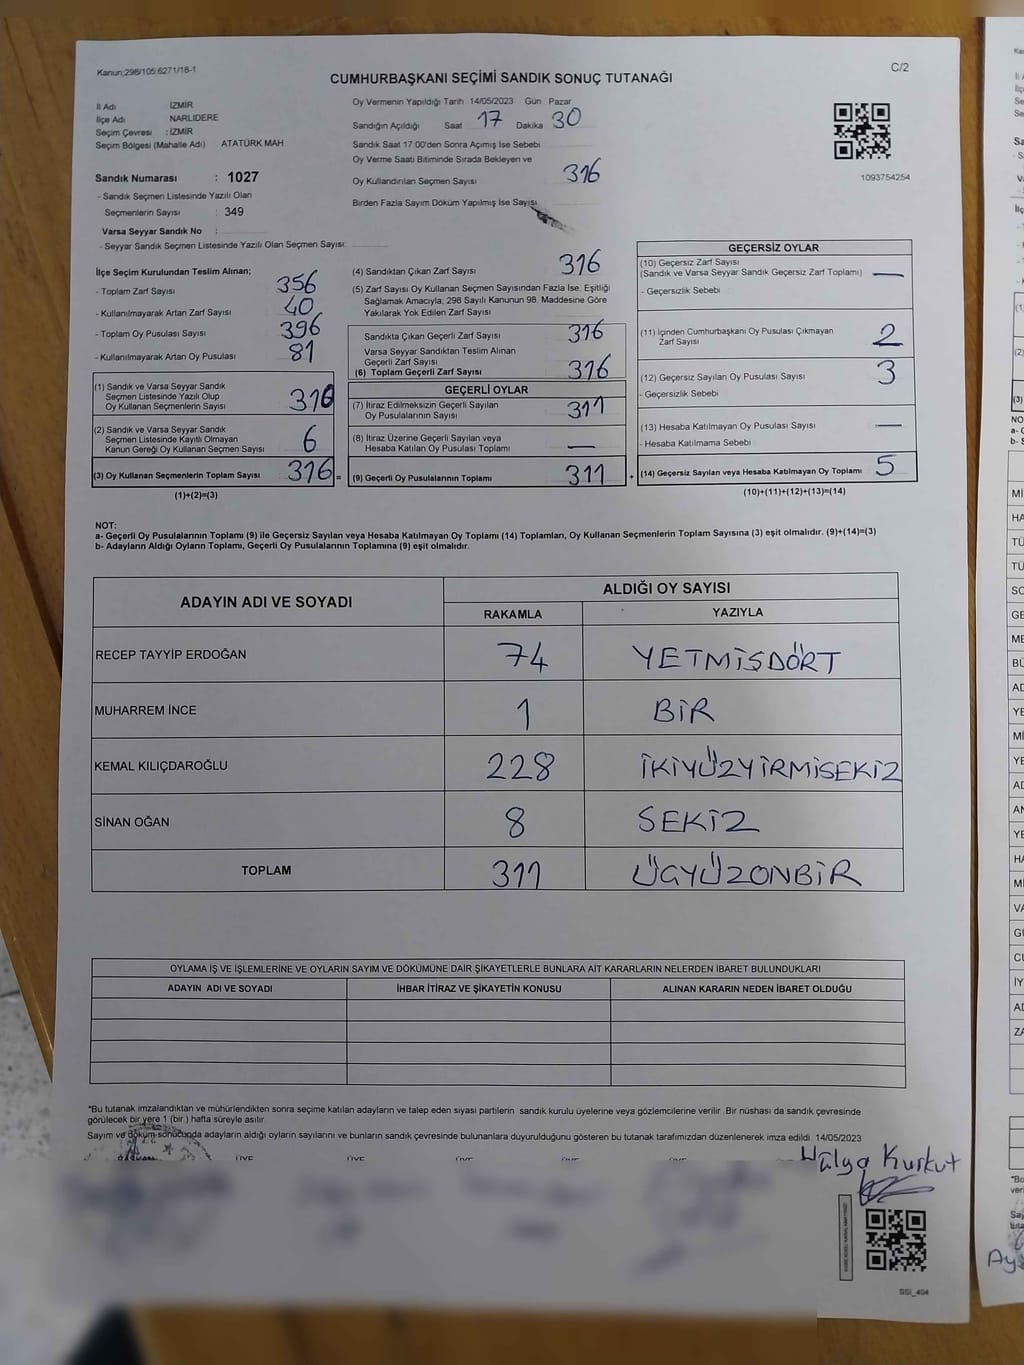 Kanun;298/105;6271/18-1
C/2
CUMHURBAŞKANI SEÇİMİ SANDIK SONUÇ TUTANAĞI
İl Adı İZMİR
İlçe Adı NARLIDERE
Seçim Çevresi : İZMİR
Seçim Bölgesi (Mahalle Adı) ATATÜRK MAH
Sandık Numarası : 1027
- Sandık Seçmen Listesinde Yazılı Olan
Seçmenlerin Sayısı : 349
Varsa Seyyar Sandık No :
- Seyyar Sandık Seçmen Listesinde Yazılı Olan Seçmen Sayısı:
Oy Vermenin Yapıldığı Tarih 14/05/2023 Gün Pazar
Sandığın Açıldığı Saat 17 Dakika 30
Sandık Saat 17:00'den Sonra Açımış İse Sebebi
Oy Verme Saati Bitiminde Sırada Bekleyen ve
Oy Kullandırılan Seçmen Sayısı 316
Birden Fazla Sayım Döküm Yapılmış İse Sayısı
1093754254
İlçe Seçim Kurulundan Teslim Alınan;
- Toplam Zarf Sayısı 356
- Kullanılmayarak Artan Zarf Sayısı 40
- Toplam Oy Pusulası Sayısı 396
- Kullanılmayarak Artan Oy Pusulası 81
(1) Sandık ve Varsa Seyyar Sandık
Seçmen Listesinde Yazılı Olup
Oy Kullanan Seçmenlerin Sayısı 310
(2) Sandık ve Varsa Seyyar Sandık
Seçmen Listesinde Kayıtlı Olmayan
Kanun Gereği Oy Kullanan Seçmen Sayısı 6
(3) Oy Kullanan Seçmenlerin Toplam Sayısı 316 =
(1)+(2)=(3)
(4) Sandıktan Çıkan Zarf Sayısı 316
(5) Zarf Sayısı Oy Kullanan Seçmen Sayısından Fazla İse, Eşitliği
Sağlamak Amacıyla, 298 Sayılı Kanunun 98. Maddesine Göre
Yakılarak Yok Edilen Zarf Sayısı
Sandıkta Çıkan Geçerli Zarf Sayısı 316
Varsa Seyyar Sandıktan Teslim Alınan
Geçerli Zarf Sayısı
(6) Toplam Geçerli Zarf Sayısı 316
GEÇERLİ OYLAR
(7) İtiraz Edilmeksizin Geçerli Sayılan
Oy Pusulalarının Sayısı 311
(8) İtiraz Üzerine Geçerli Sayılan veya
Hesaba Katılan Oy Pusulaları Toplamı —
(9) Geçerli Oy Pusulalarının Toplamı 311 +
GEÇERSİZ OYLAR
(10) Geçersiz Zarf Sayısı
(Sandık ve Varsa Seyyar Sandık Geçersiz Zarf Toplamı) —
- Geçersizlik Sebebi
(11) İçinden Cumhurbaşkanı Oy Pusulası Çıkmayan
Zarf Sayısı 2
(12) Geçersiz Sayılan Oy Pusulası Sayısı 3
- Geçersizlik Sebebi
(13) Hesaba Katılmayan Oy Pusulası Sayısı —
- Hesaba Katılmama Sebebi
(14) Geçersiz Sayılan veya Hesaba Katılmayan Oy Toplamı 5
(10)+(11)+(12)+(13)=(14)
NOT:
a- Geçerli Oy Pusulalarının Toplamı (9) ile Geçersiz Sayılan veya Hesaba Katılmayan Oy Toplamı (14) Toplamları, Oy Kullanan Seçmenlerin Toplam Sayısına (3) eşit olmalıdır. (9)+(14)=(3)
b- Adayların Aldığı Oyların Toplamı, Geçerli Oy Pusulalarının Toplamına (9) eşit olmalıdır.
ADAYIN ADI VE SOYADI
ALDIĞI OY SAYISI
RAKAMLA YAZIYLA
RECEP TAYYİP ERDOĞAN 74 YETMİŞDÖRT
MUHARREM İNCE 1 BİR
KEMAL KILIÇDAROĞLU 228 İKİYÜZYİRMİSEKİZ
SİNAN OĞAN 8 SEKİZ
TOPLAM 311 ÜÇYÜZONBİR
OYLAMA İŞ VE İŞLEMLERİNE VE OYLARIN SAYIM VE DÖKÜMÜNE DAİR ŞİKAYETLERLE BUNLARA AİT KARARLARIN NELERDEN İBARET BULUNDUKLARI
ADAYIN ADI VE SOYADI İHBAR İTİRAZ VE ŞİKAYETİN KONUSU ALINAN KARARIN NEDEN İBARET OLDUĞU
*Bu tutanak imzalandıktan ve mühürlendikten sonra seçime katılan adayların ve talep eden siyasi partilerin sandık kurulu üyelerine veya gözlemcilerine verilir. Bir nüshası da sandık çevresinde
görülecek bir yere 1 (bir ) hafta süreyle asılır.
Sayım ve döküm sonucunda adayların aldığı oyların sayılarını ve bunların sandık çevresinde bulunanlara duyurulduğunu gösteren bu tutanak tarafımızdan düzenlenerek imza edildi. 14/05/2023
BAŞKAN ÜYE ÜYE ÜYE ÜYE ÜYE
Hülya Kurkut
SSI_404